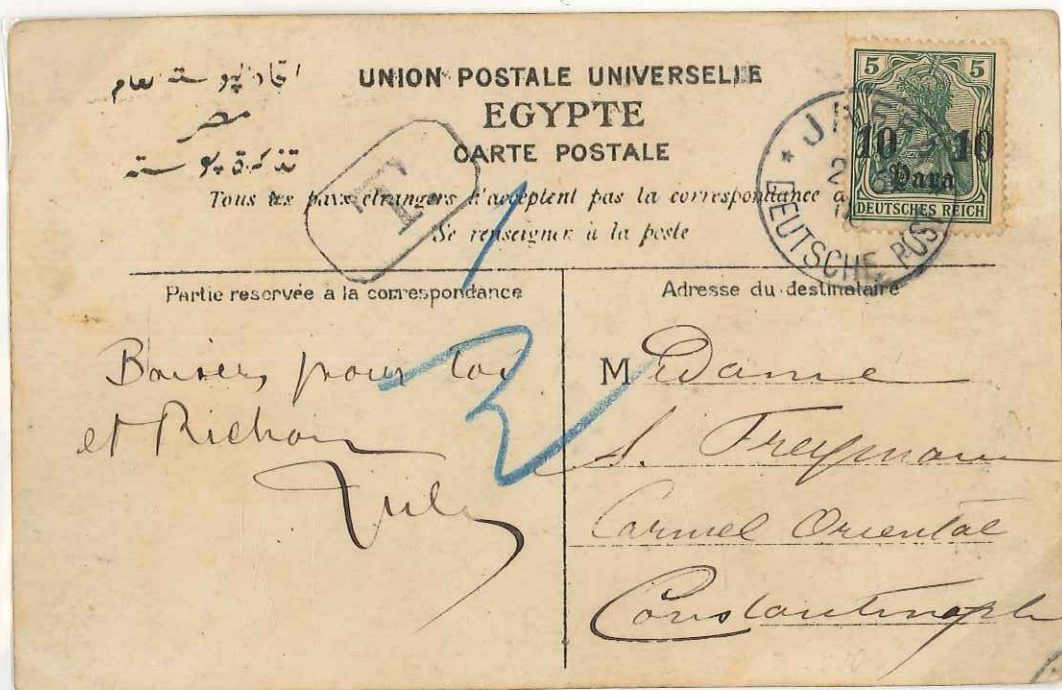 اتحاد پوسته عام
مصر
تذكرة پوسته
UNION POSTALE UNIVERSELLE
EGYPTE
CARTE POSTALE
Tous les pays étrangers n'acceptent pas la correspondance
Se renseigner à la poste
T
5 5
10 10
Para
DEUTSCHES REICH
DEUTSCHE POST
Partie reservée à la correspondance
Adresse du destinataire
Baisers pour toi
et
2
Madame
Carmel Oriental
Constantinople